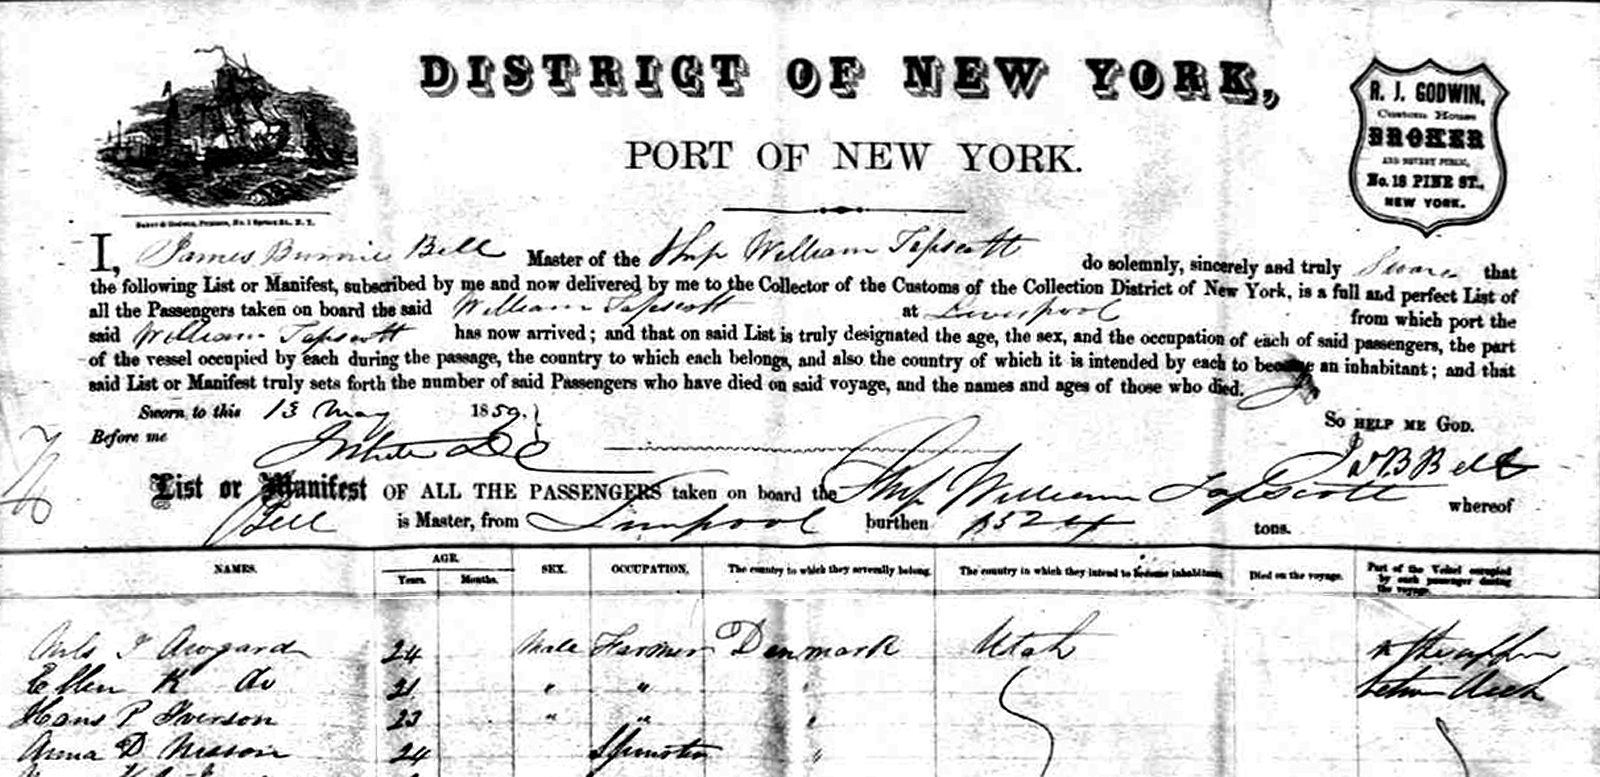 DISTRICT OF NEW YORK,
PORT OF NEW YORK.
R. J. GODWIN,
Custom House
BROKER
AND NOTARY PUBLIC,
No. 18 PINE ST.,
NEW YORK.
Baker & Godwin, Printers, No. 1 Spruce St., N. Y.
I, James Bell Master of the Ship William Tapscott do solemnly, sincerely and truly Swear that
the following List or Manifest, subscribed by me and now delivered by me to the Collector of the Customs of the Collection District of New York, is a full and perfect List of
all the Passengers taken on board the said William Tapscott at Liverpool from which port the
said William Tapscott has now arrived; and that on said List is truly designated the age, the sex, and the occupation of each of said passengers, the part
of the vessel occupied by each during the passage, the country to which each belongs, and also the country of which it is intended by each to become an inhabitant; and that
said List or Manifest truly sets forth the number of said Passengers who have died on said voyage, and the names and ages of those who died.
Sworn to this 13 May 1859.
So HELP ME GOD.
Before me
Jas B Bell
List or Manifest OF ALL THE PASSENGERS taken on board the Ship William Tapscott whereof
Bell is Master, from Liverpool burthen 1524 tons.
NAMES. AGE. Years. Months. SEX. OCCUPATION. The country to which they severally belong. The country in which they intend to become inhabitants. Died on the voyage. Part of the Vessel occupied by each passenger during the voyage.
Nils 24 Male Farmer Denmark Utah n the upper
Ellen K do 21 " " " between deck
Hans P Iverson 23 " " "
Anna D 24 Spinster "